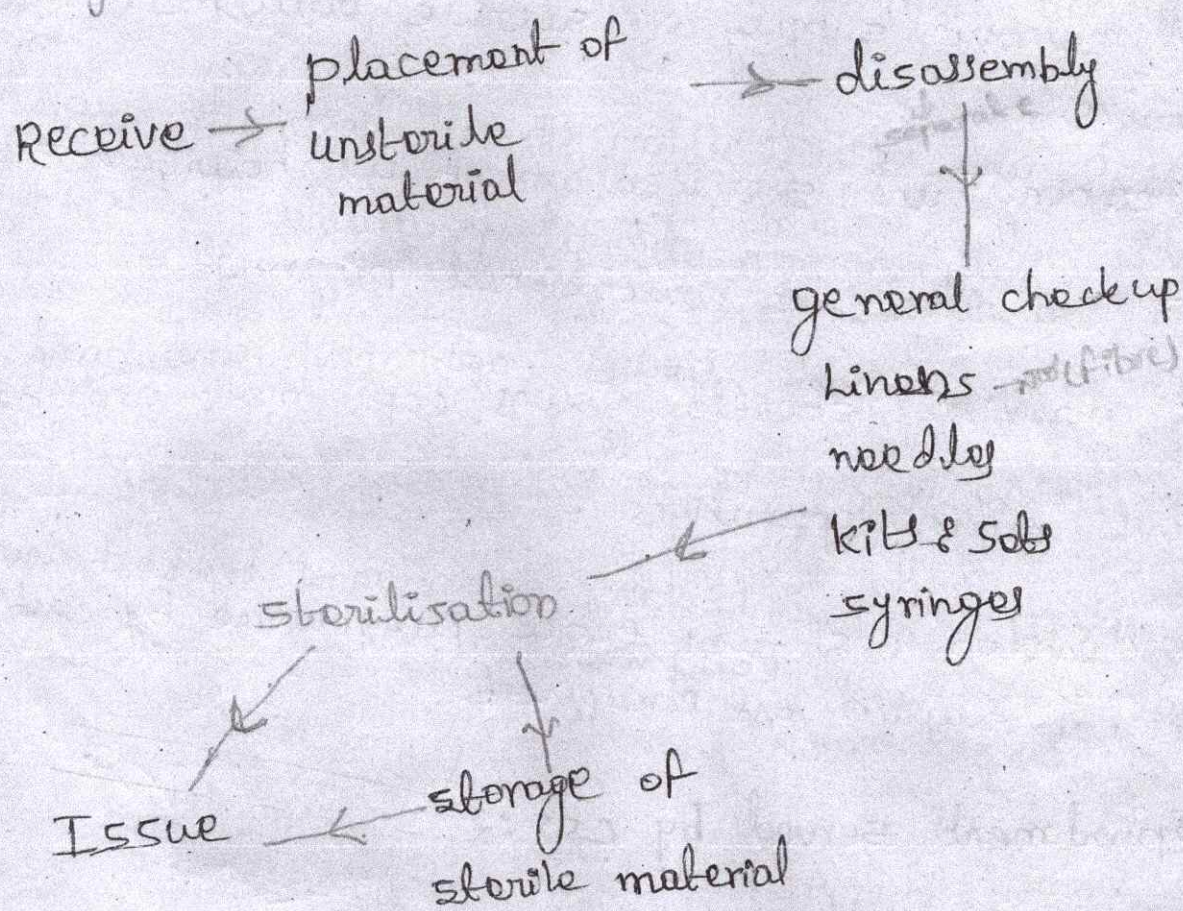 Receive
placement of
unsterile
material
disassembly
separate
general checkup
Linens
(fibre)
needles
kits & sets
syringes
sterilisation
Issue
storage of
sterile material